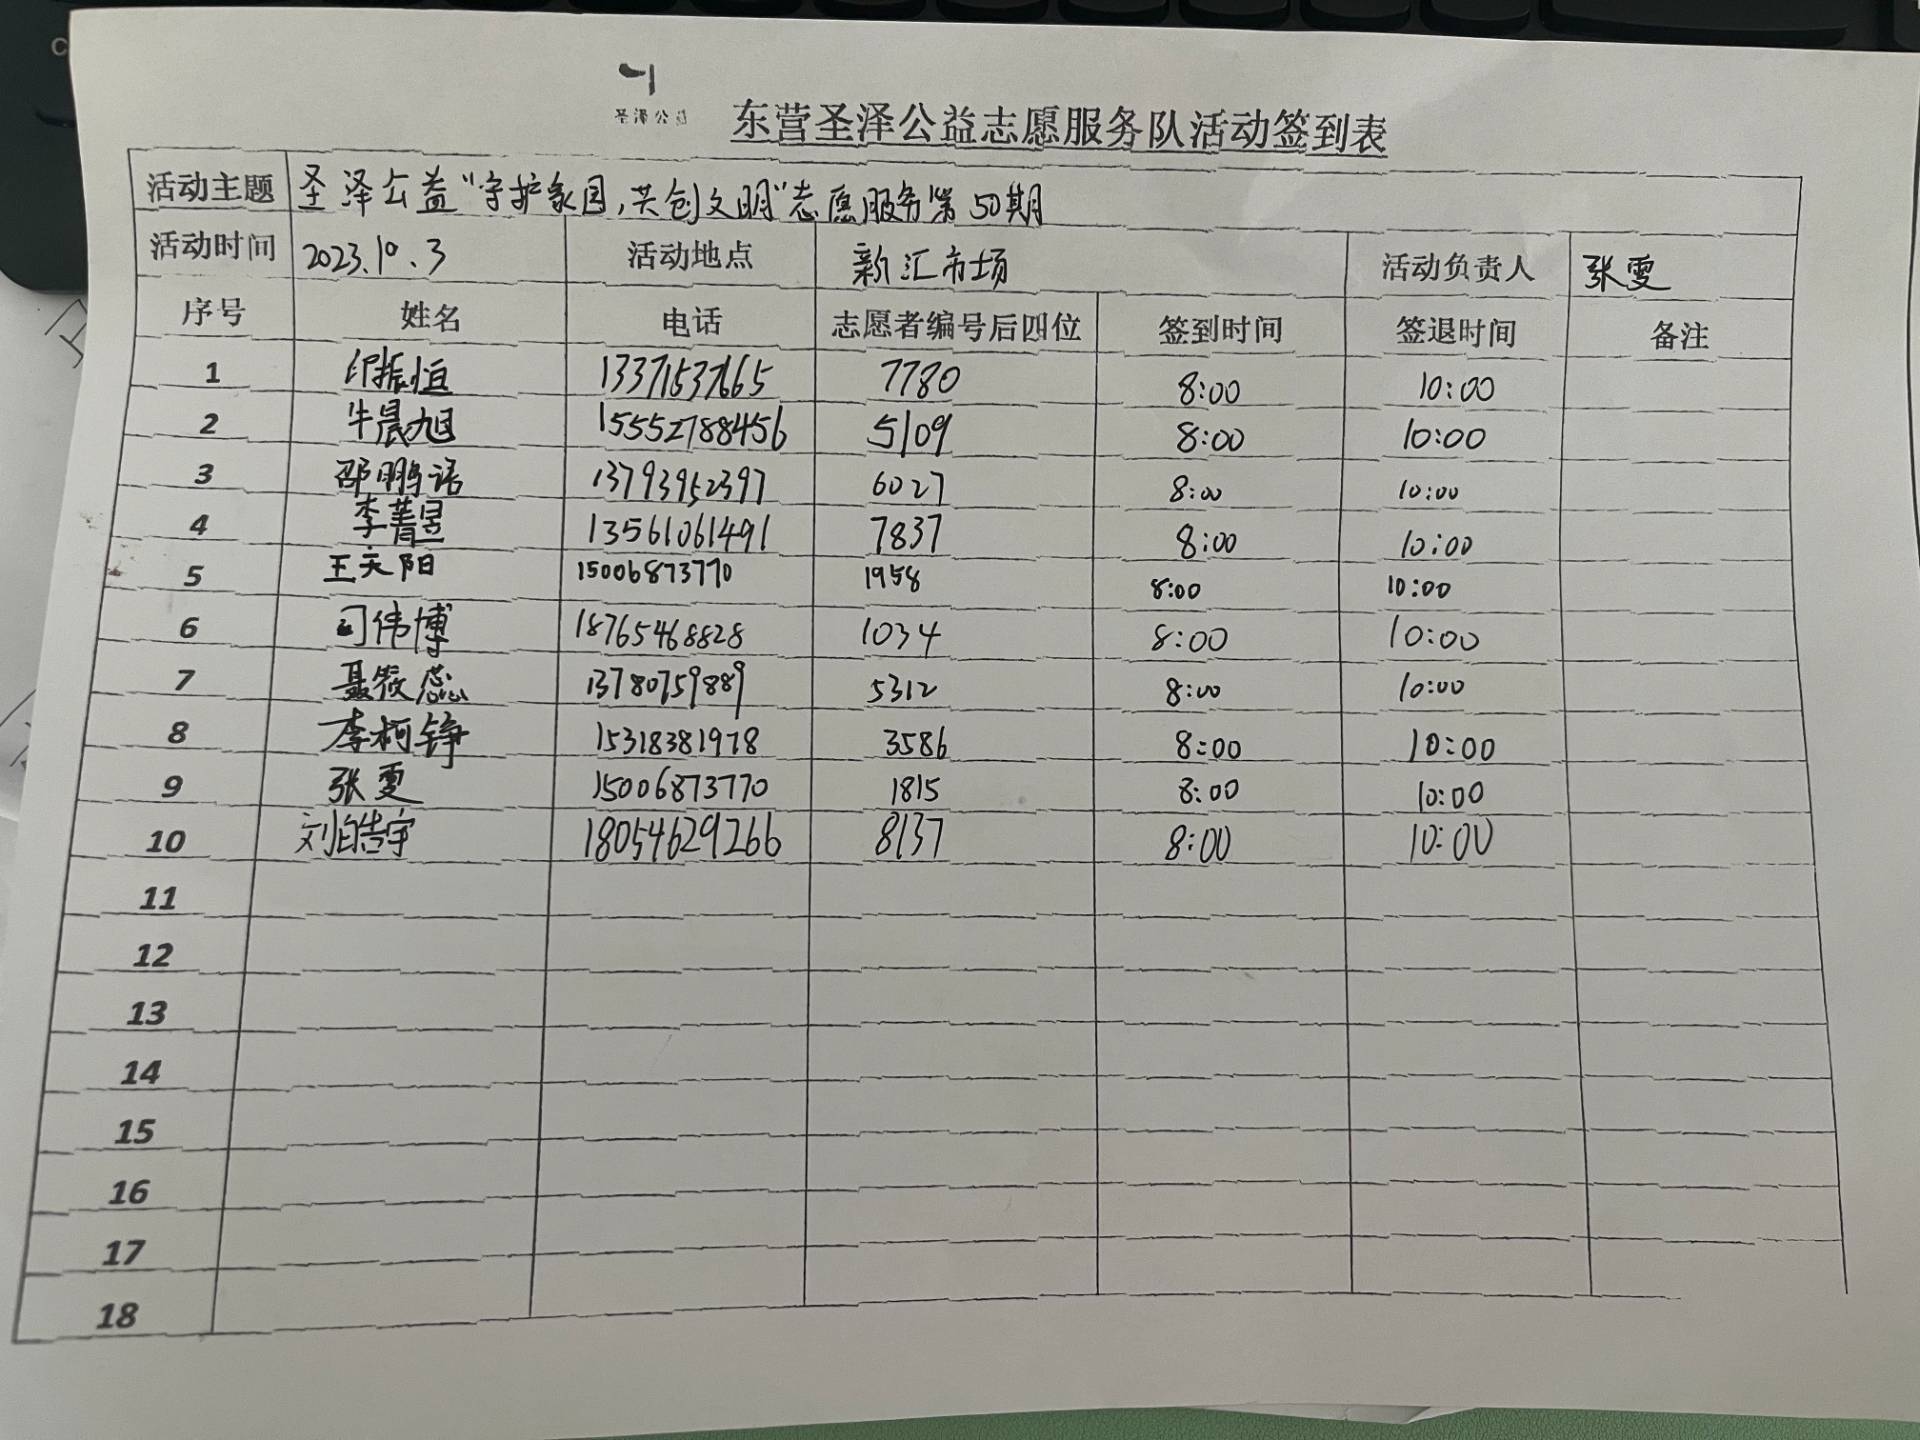 圣泽公益
东营圣泽公益志愿服务队活动签到表
活动主题 圣泽公益“守护家园,共创文明”志愿服务第50期
活动时间 2023.10.3 活动地点 新汇市场 活动负责人 张雯
序号 姓名 电话 志愿者编号后四位 签到时间 签退时间 备注
1 印振恒 13371537665 7780 8:00 10:00
2 牛晨旭 15552788456 5109 8:00 10:00
3 邵鹏语 13793952397 6027 8:00 10:00
4 李菁昱 13561061491 7837 8:00 10:00
5 王天阳 15006873770 1958 8:00 10:00
6 司伟博 18765468828 1034 8:00 10:00
7 聂筱蕊 13780759889 5312 8:00 10:00
8 李柯铮 15318381978 3586 8:00 10:00
9 张雯 15006873770 1815 8:00 10:00
10 刘皓宇 18054629266 8137 8:00 10:00
11
12
13
14
15
16
17
18